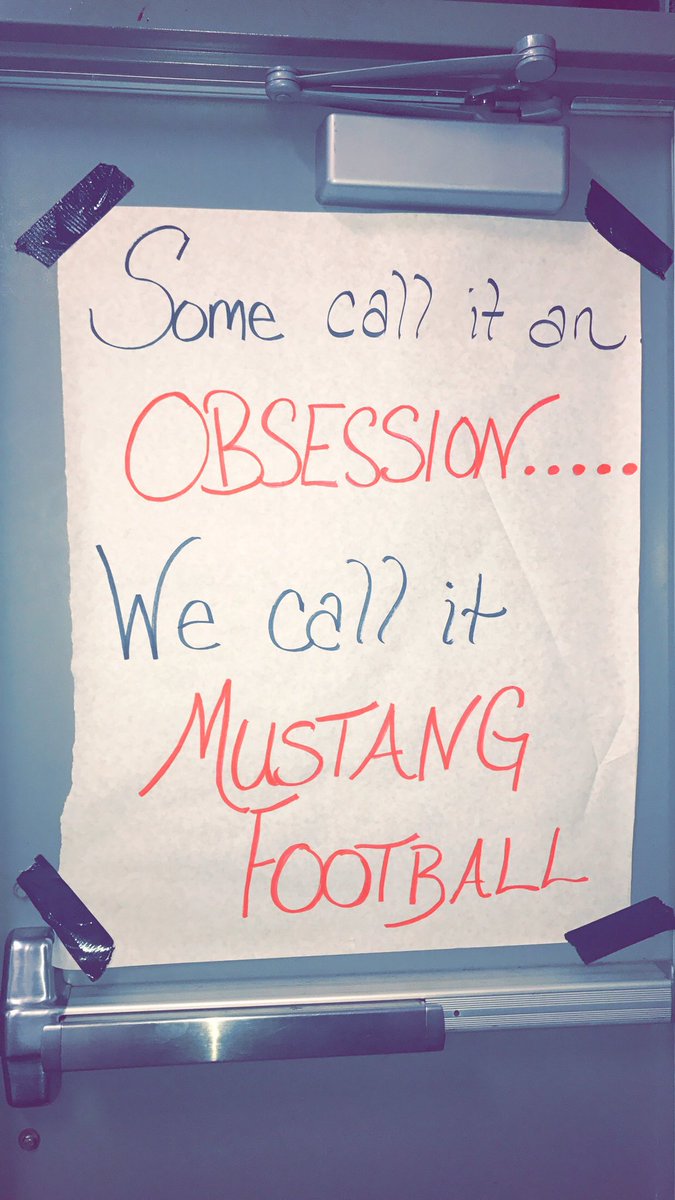 Some call it an
OBSESSION.....
We call it
MUSTANG
FOOTBALL